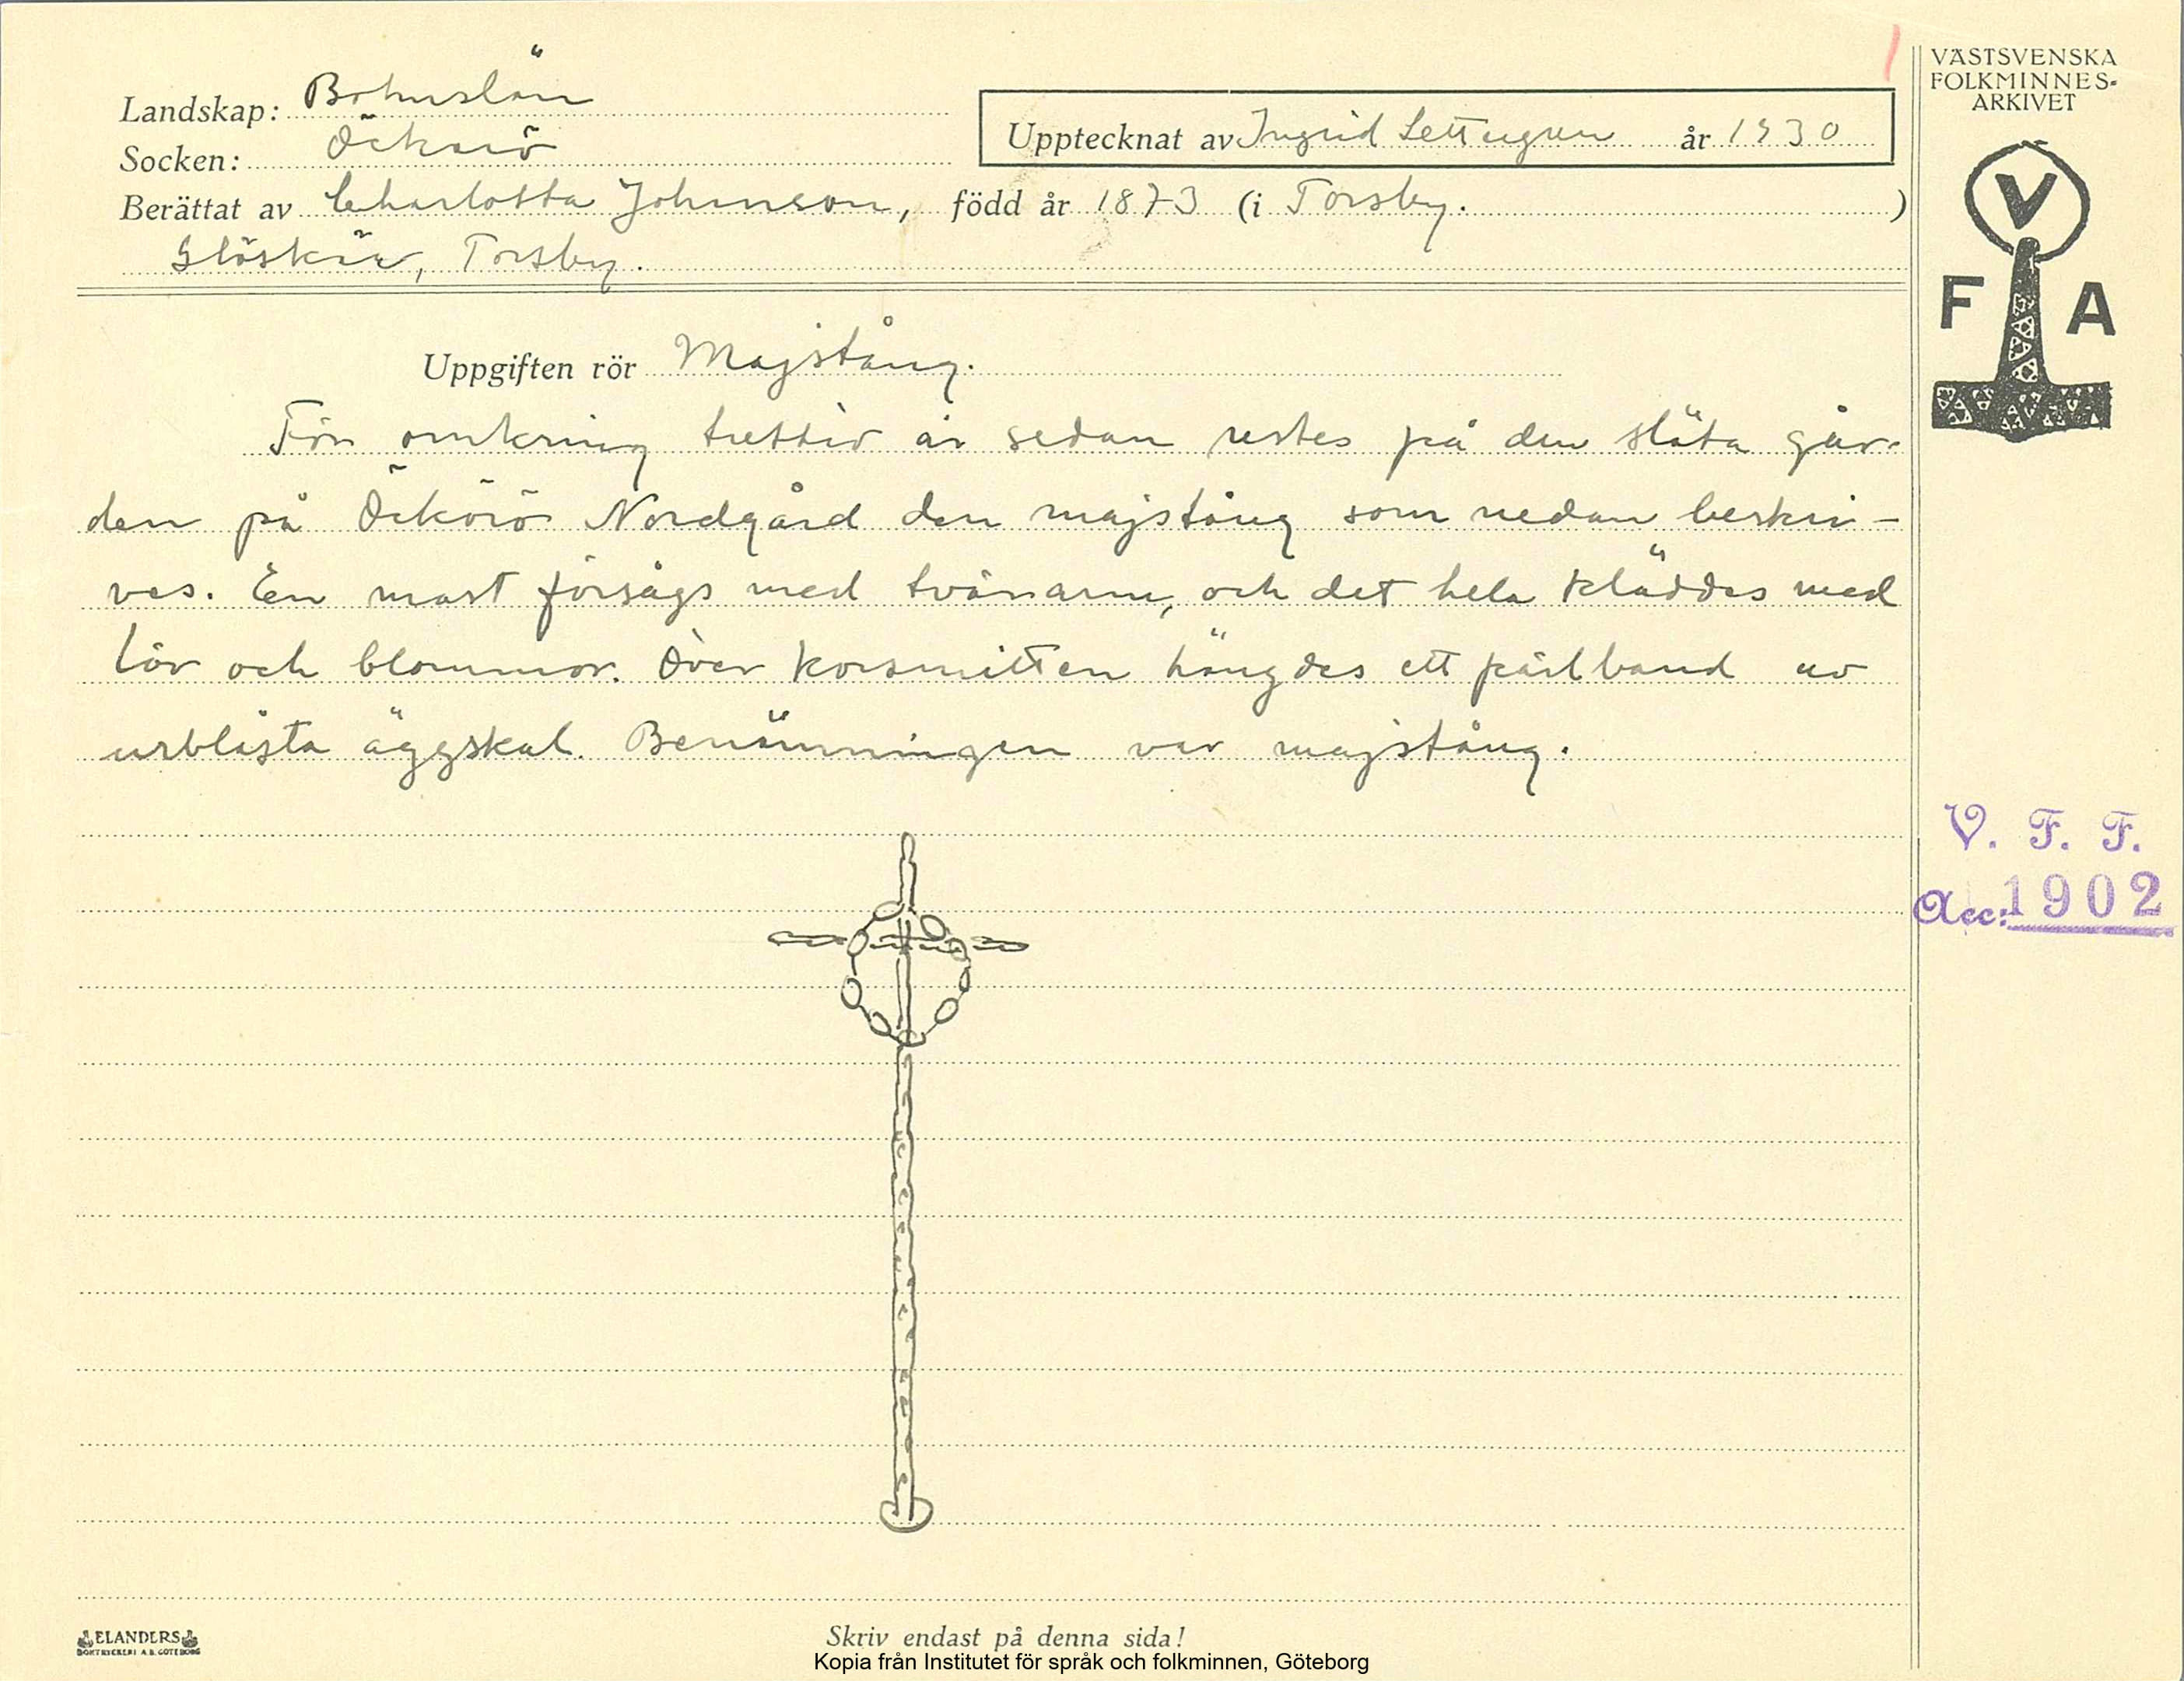 Landskap: Bohuslän
Socken: Öckerö
Upptecknat av Ingrid Settergren år 1930
Berättat av Charlotta Johnson, född år 1873 (i Torsby. )
Glöskär, Torsby.
Uppgiften rör Majstång.
För omkring trettio år sedan restes på den släta går-
den på Öckerö Nordgård den majstång som nedan beskri-
ves. En mast försågs med tvärarm, och det hela kläddes med
löv och blommor. Över korsmitten hängdes ett pärlband av
urblåsta äggskal. Benämningen var majstång.
VÄSTSVENSKA
FOLKMINNES-
ARKIVET
V
F A
V. F. F.
Acc: 1902
ELANDERS
BOKTRYCKERI A.B. GÖTEBORG
Skriv endast på denna sida!
Kopia från Institutet för språk och folkminnen, Göteborg